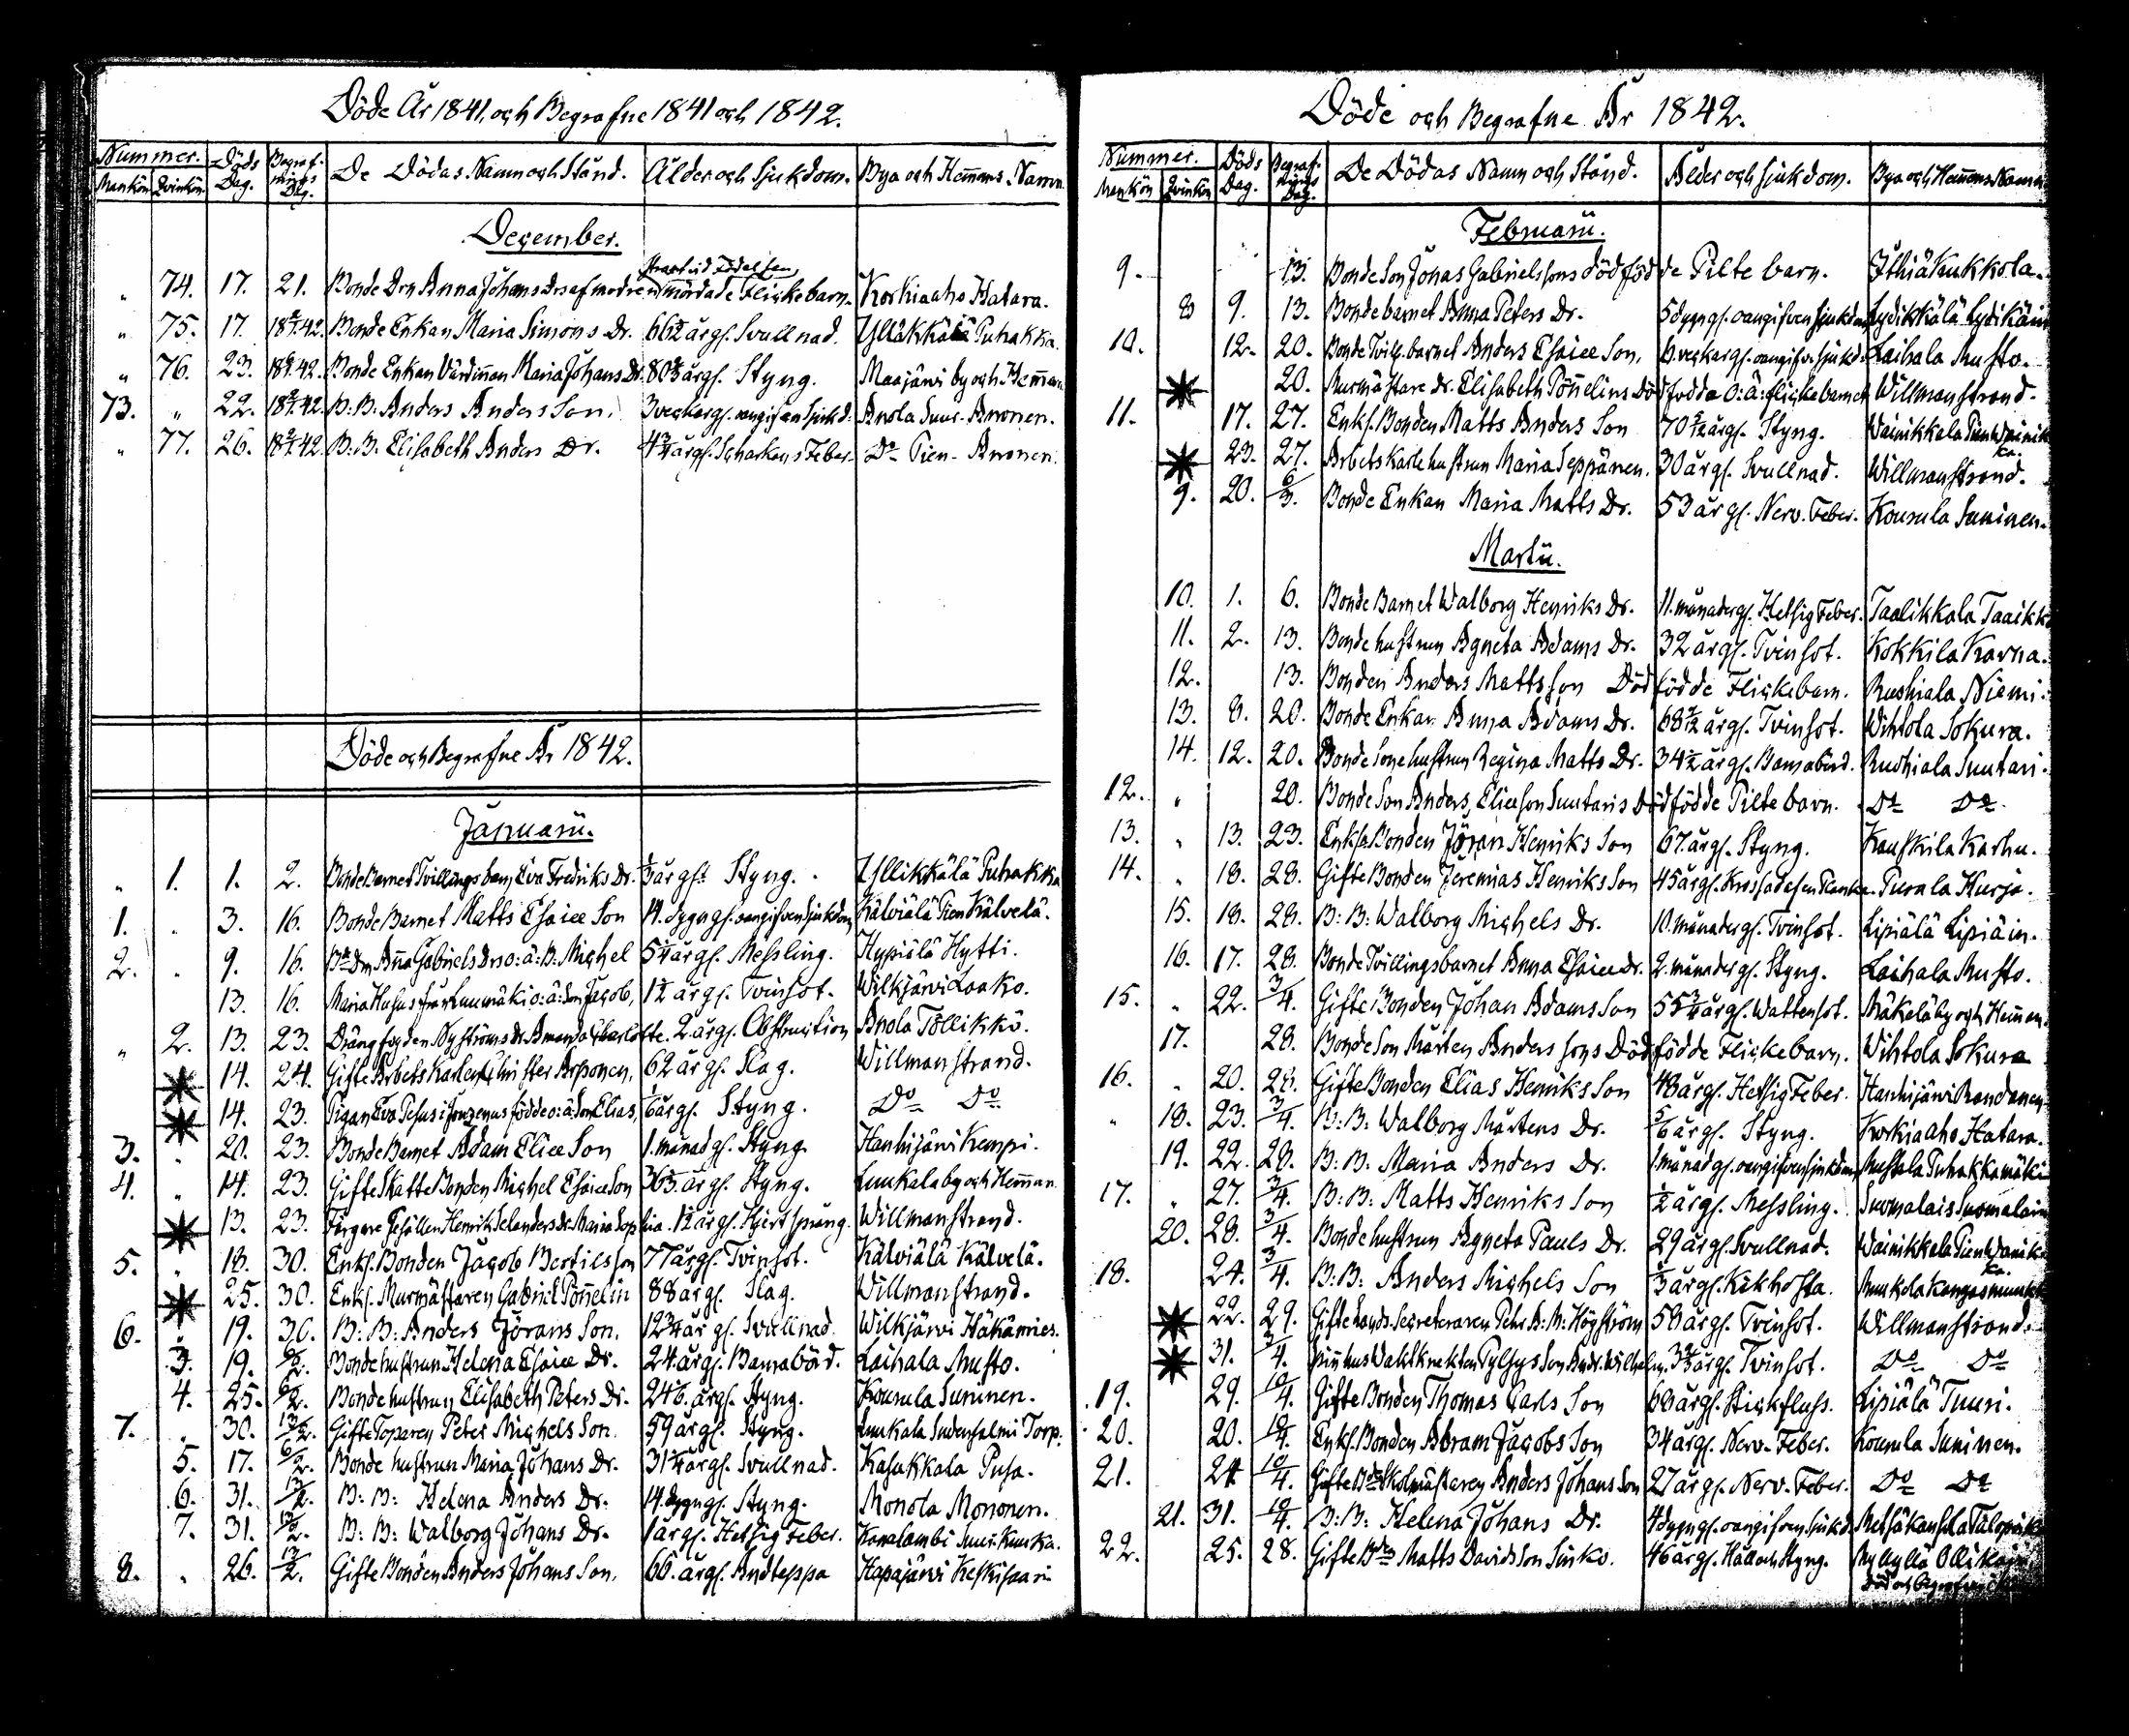 Döde År 1841, och Begrafne 1841 och 1842.
Nummer. Döds Dag. Begrafnings Dag. De Dödas Namn och Stånd. Ålder och Sjukdom. Bya och Hemans Namn
Mankön Qvinkön
December.
strart vid Födelsen
" 74. 17. 21. Bonde Drn Anna Johans Drs af modren mördade Flickebarn. Korkiaaho Hatara.
" 75. 17. 18 2/1 42. Bonde Enkan Maria Simons Dr. 66½ årgl. Svullnad. Yllikkälä Puhakka.
" 76. 23. 18 42. Bonde Enkan Värdinnan Maria Johans Dr. 80 årgl. Styng. Maajärvi by och Hemman
73. " 22. 18 42. B: B: Anders Anders Son. 3 veckorgl. oangifven Sjukd: Anola Suur-Anonen.
" 77. 26. 18 42. B: B. Elisabeth Anders Dr. 4¾ årgl. Scharlens Feber. Do Pien-Anonen.
Döde och Begrafne År 1842.
Januarii.
" 1. 1. 2. Bonde Barnet Tvillingsbarn, Eva Fredriks Dr. ⅓ årgl. Styng. Yllikkälä Puhakka
1. " 3. 16. Bonde Barnet Matts Esaiæ Son 14. dygngl. oangifven Sjukdom Kälviälä Pien Kälvelä.
2. " 9. 16. Bde Drn Anna Gabriels Drs o: ä: B: Michel 5¼ årgl. Messling. Hypiälä Hytti.
13. 16. Maria Husus från Luumäki o: ä: Son Jacob, 1½ årgl. Tvinsot. Wilkjärvi Loako.
" 2. 13. 23. Drängfogden Nyströms Dr. Amanda Charlotte. 2. årgl. Obstruction Anola Töllikkö.
14. 24. Gifte Arbets Karlen Arponen, 62 årgl. Slag. Willmanstrand.
14. 23. Pigan Eva födde o: ä: Son Elias, 1/6 årgl. Styng. Do Do
3. " 20. 23. Bonde Barnet Adam Eliæ Son 1. månadgl. Styng. Hanhijärvi Kemppi.
4. " 14. 23. Gifte Skatte Bonden Michel Esaiæ Son 36 årgl. Styng. Luukala by och Hemman
13. 23. Färgare Gesällen Henrik Selanders Dr. Maria Sophia. 1½ årgl. Hjertsprång. Willmanstrand.
5. " 18. 30. Enkl. Bonden Jacob Bertilsson 77 årgl. Tvinsot. Kälviälä Kälvelä.
25. 30. Enkl. Murmästaren Gabriel Pönnelin 88 årgl. Slag. Willmanstrand.
6. " 19. 30. B: B: Anders Jörans Son. 12¾ årgl. Svullnad Wilkjärvi Häkämies.
3. 19. 6/2. Bonde hustrun Helena Esaiæ Dr. 24 årgl. Barnabörd. Laihala Musto.
4. 25. 6/2. Bonde hustrun Elisabeth Peters Dr. 24 årgl. Styng. Kourula Suninen.
7. " 30. 13/2. Gifte Toparen Peter Michels Son. 59 årgl. Styng. Luukala Sudensalmi Torp.
5. 17. 6/2. Bonde hustrun Maria Johans Dr. 31¼ årgl. Svullnad. Kasukkala Pusa.
6. 31. 13/2. B: B: Helena Anders Dr. 14. dygngl. Styng. Monola Mononen.
7. 31. 13/2. B: B: Walborg Johans Dr. 1 årgl. Hetsig Feber. Kanalambi Suur-Kuukka.
8. " 26. 13/2. Gifte Bonden Anders Johans Son. 66. årgl. Andteppa Hapajärvi Keskisaari
Döde och Begrafne År 1842.
Nummer. Döds Dag. Begrafnings Dag. De Dödas Namn och Stånd. Ålder och Sjukdom. Bya och Hemans Namn
Mankön Qvinkön
Februarii.
9. 13. Bonde Son Jonas Gabrielssons dödfödde Pilte barn. Ithiä Kukkola.
8 9. 13. Bonde barnet Anna Peters Dr. 5 dygngl. oangifven Sjukdom Lydikkälä Lydikäin
10. 12. 20. Bonde Tvill. barnet Anders Esaiæ Son. 6. veckorgl. oangifv. Sjukd: Laihala Musto.
20. Murmästare Dr. Elisabeth Pönnelins dödfödda o: ä: flickebarnet Willmanstrand.
11. 17. 27. Enkl. Bonden Matts Anders Son 70 årgl. Styng. Wainikkala Pien Wainikka.
23. 27. Arbets Karls hustrun Maria Seppänen. 30 årgl. Svullnad. Willmanstrand.
9. 20. 6/3. Bonde Enkan Maria Matts Dr. 53 årgl. Nerv. Feber. Kourula Suninen.
Martii.
10. 1. 6. Bonde Barnet Walborg Henriks Dr. 11. månadergl. Hetsig Feber. Taalikkala Taaikk
11. 2. 13. Bonde hustrun Agneta Adams Dr. 32 årgl. Tvinsot. Kokkila Karna.
12. 13. Bonden Anders Matts son Dödfödde Flickebarn. Ruohiala Niemi.
13. 8. 20. Bonde Enkan Anna Adams Dr. 68½ årgl. Tvinsot. Wihtola Sokura.
14. 12. 20. Bonde Sone hustrun Regina Matts Dr. 34½ årgl. Barnabörd. Ruohiala Suutari.
12. " 20. Bonde Son Anders, Eliæ Son Suutaris Dödfödde Pilte barn. Do Do
13. " 13. 23. Enkl. Bonden Jöran Henriks Son 67. årgl. Styng. Kauskila Karhu.
14. " 18. 28. Gifte Bonden Jeremias Henriks Son 45 årgl. Krossades en Planka. Purala Hurja.
15. 18. 28. B: B: Walborg Michels Dr. 10. månadergl. Tvinsot. Lipiälä Lipiäin.
16. 17. 28. Bonde Tvillingsbarnet Anna Esaiæ Dr. 2. månadergl. Styng. Laihala Musto.
15. " 22. 3/4. Gifte Bonden Johan Adams Son 55¾ årgl. Wattensot. Mäkelä by och Hemman.
17. 28. Bonde Son Mårten Anders sons Dödfödde Flickebarn. Wihtola Sokura
16. " 20. 28. Gifte Bonden Elias Henriks Son 48 årgl. Hetsig Feber. Hanhijärvi Rondanen
" 18. 23. 3/4. B: B: Walborg Mårtens Dr. 5/6 årgl. Styng. Korkiaaho Hatara.
19. 22. 28. B: B: Maria Anders Dr. 1. månadgl. oangifven Sjukdom Mussala Puhakkamäki
17. " 27. 3/4. B: B: Matts Henriks Son ½ årgl. Messling. Suomalais Suomalain
20. 28. 3/4. Bonde hustrun Agneta Pauls Dr. 29 årgl. Svullnad. Wainikkala Pien Wainikka.
18. 24. 3/4. B: B: Anders Michels Son ⅓ årgl. Kikhosta. Munkola Kangasmunkk
22. 29. Gifte Lands Secreteraren Petr. A: M: Högström 58 årgl. Tvinsot. Willmanstrand.
31. 3/4. Wilhelm. 3 årgl. Tvinsot. Do Do
19. 29. 10/4. Gifte Bonden Thomas Carls Son 68 årgl. Stickfluss. Lipiälä Tuuri.
20. 20. 10/4. Enkl. Bonden Abram Jacobs Son 34 årgl. Nerv. Feber. Kourula Suninen.
21. 24 10/4. Gifte Bde Skolmästaren Anders Johans Son 27 årgl. Nerv. Feber. Do Do
21. 31. 10/4. B: B: Helena Johans Dr. 4 dygngl. oangifven Sjukd:
22. 25. 28. Gifte Bden Matts Davids Son Sinko. 46 årgl. Håll och Styng. Myllylä